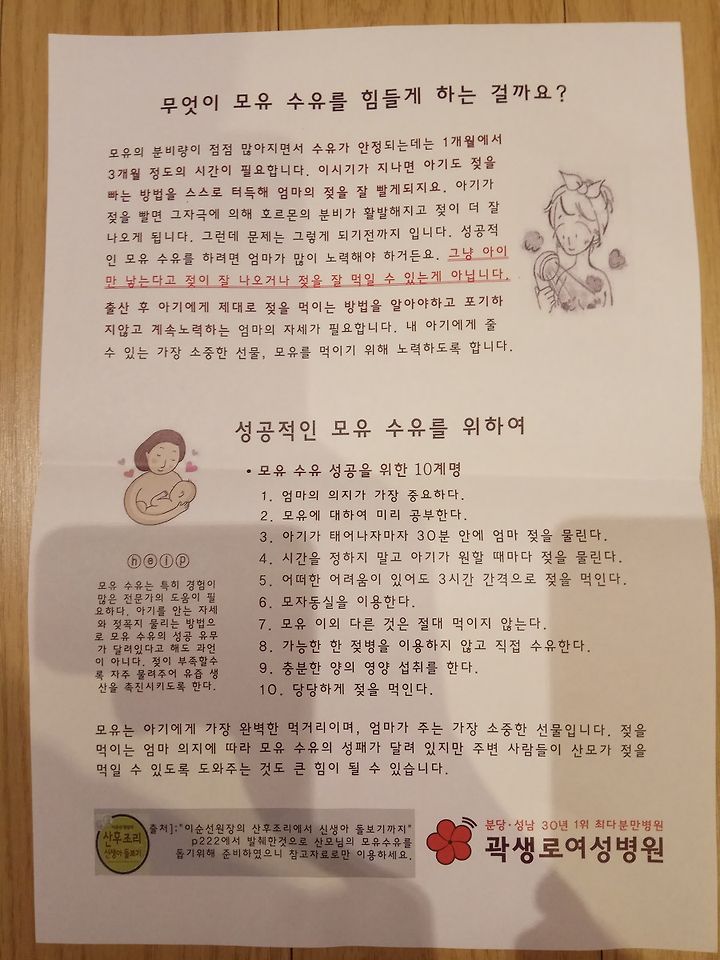 무엇이 모유 수유를 힘들게 하는 걸까요?
모유의 분비량이 점점 많아지면서 수유가 안정되는데는 1개월에서
3개월 정도의 시간이 필요합니다. 이시기가 지나면 아기도 젖을
빠는 방법을 스스로 터득해 엄마의 젖을 잘 빨게되지요. 아기가
젖을 빨면 그자극에 의해 호르몬의 분비가 활발해지고 젖이 더 잘
나오게 됩니다. 그런데 문제는 그렇게 되기전까지 입니다. 성공적
인 모유 수유를 하려면 엄마가 많이 노력해야 하거든요. 그냥 아이
만 낳는다고 젖이 잘 나오거나 젖을 잘 먹일 수 있는게 아닙니다.
출산 후 아기에게 제대로 젖을 먹이는 방법을 알아야하고 포기하
지않고 계속노력하는 엄마의 자세가 필요합니다. 내 아기에게 줄
수 있는 가장 소중한 선물, 모유를 먹이기 위해 노력하도록 합니다.
성공적인 모유 수유를 위하여
• 모유 수유 성공을 위한 10계명
1. 엄마의 의지가 가장 중요하다.
2. 모유에 대하여 미리 공부한다.
3. 아기가 태어나자마자 30분 안에 엄마 젖을 물린다.
4. 시간을 정하지 말고 아기가 원할 때마다 젖을 물린다.
5. 어떠한 어려움이 있어도 3시간 간격으로 젖을 먹인다.
6. 모자동실을 이용한다.
7. 모유 이외 다른 것은 절대 먹이지 않는다.
8. 가능한 한 젖병을 이용하지 않고 직접 수유한다.
9. 충분한 양의 영양 섭취를 한다.
10. 당당하게 젖을 먹인다.
help
모유 수유는 특히 경험이
많은 전문가의 도움이 필
요하다. 아기를 안는 자세
와 젖꼭지 물리는 방법으
로 모유 수유의 성공 유무
가 달려있다고 해도 과언
이 아니다. 젖이 부족할수
록 자주 물려주어 유즙 생
산을 촉진시키도록 한다.
모유는 아기에게 가장 완벽한 먹거리이며, 엄마가 주는 가장 소중한 선물입니다. 젖을
먹이는 엄마 의지에 따라 모유 수유의 성패가 달려 있지만 주변 사람들이 산모가 젖을
먹일 수 있도록 도와주는 것도 큰 힘이 될 수 있습니다.
산후조리
신생아 돌보기
출처]:"이순선원장의 산후조리에서 신생아 돌보기까지"
p222에서 발췌한것으로 산모님의 모유수유를
돕기위해 준비하였으니 참고자료로만 이용하세요.
분당·성남 30년 1위 최다분만병원
곽생로여성병원